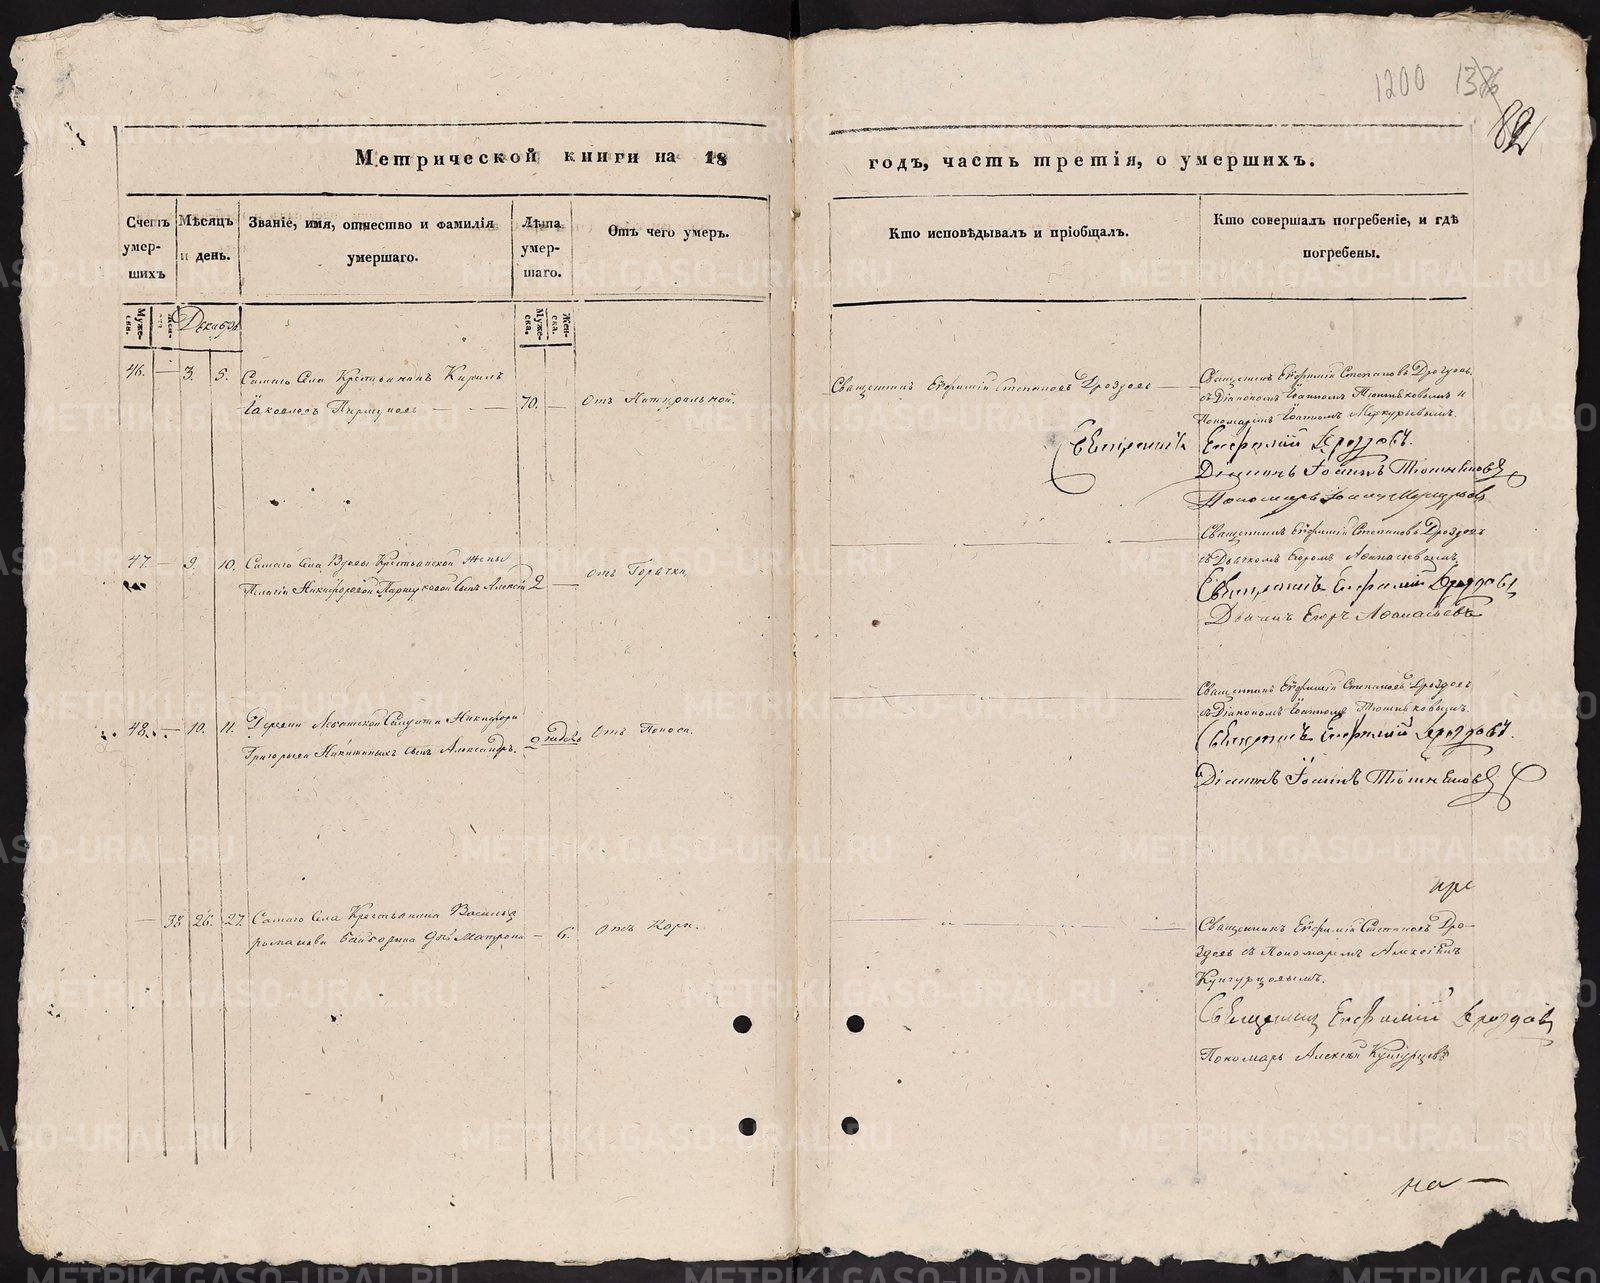 1200 136
82
Метрической книги на 18 годъ, часть третія, о умершихъ.
Счетъ умер-шихъ
Мѣсяцъ и день.
Званіе, имя, отчество и фамилія умершаго.
Лѣта умер-шаго.
Отъ чего умеръ.
Кто исповѣдывалъ и пріобщалъ.
Кто совершалъ погребеніе, и гдѣ погребены.
Муже-ска.
Жен-ска.
Декабрь
Муже-ска.
Жен-ска.
46. — 3. 5. Самаго Села Крестьянинъ
Іаковлевъ Паршуковъ — — 70. — Отъ Натуральной.
Священникъ Евфимій Стефановъ Дроздовъ —
Священникъ Евфимій Стефановъ Дроздовъ
съ Діакономъ Іоанномъ Тютняковымъ и
Пономаремъ Іоанномъ Меркурьевымъ.
Священникъ Евфимій Дроздовъ.
Діаконъ Іоаннъ
Пономарь Іоаннъ Меркурьевъ
47. — 9. 10. Самаго Села Вдовы Крестьянской Жены
Никифоровой Паршуковой Сынъ Алексій 2 — отъ Горячки
Священникъ Евфимій Стефановъ Дроздовъ
съ Дьячкомъ Егоромъ Афанасьевымъ
Священникъ Евфимій Дроздовъ
Дьячекъ Егоръ Афанасьевъ
48. — 10. 11. Деревни Солдата Никифора
Григорьева Никитиныхъ сынъ Александръ. Отъ Поноса.
Священникъ Евфимій Стефановъ Дроздовъ
съ Діакономъ Іоанномъ
Священникъ Евфимій Дроздовъ.
Діаконъ Іоаннъ
пре
— 38 26. 27. Самаго Села Крестьянина Василья
романова дочь Матрона — 6. отъ Кори.
Священникъ Евфимій Стефановъ Дро-
здовъ съ Пономаремъ Алексіемъ
Кунгурцовымъ.
Священникъ Евфимій Дроздовъ
Пономарь Алексѣй Кунгурцовъ
на —
METRIKI.GASO-URAL.RU